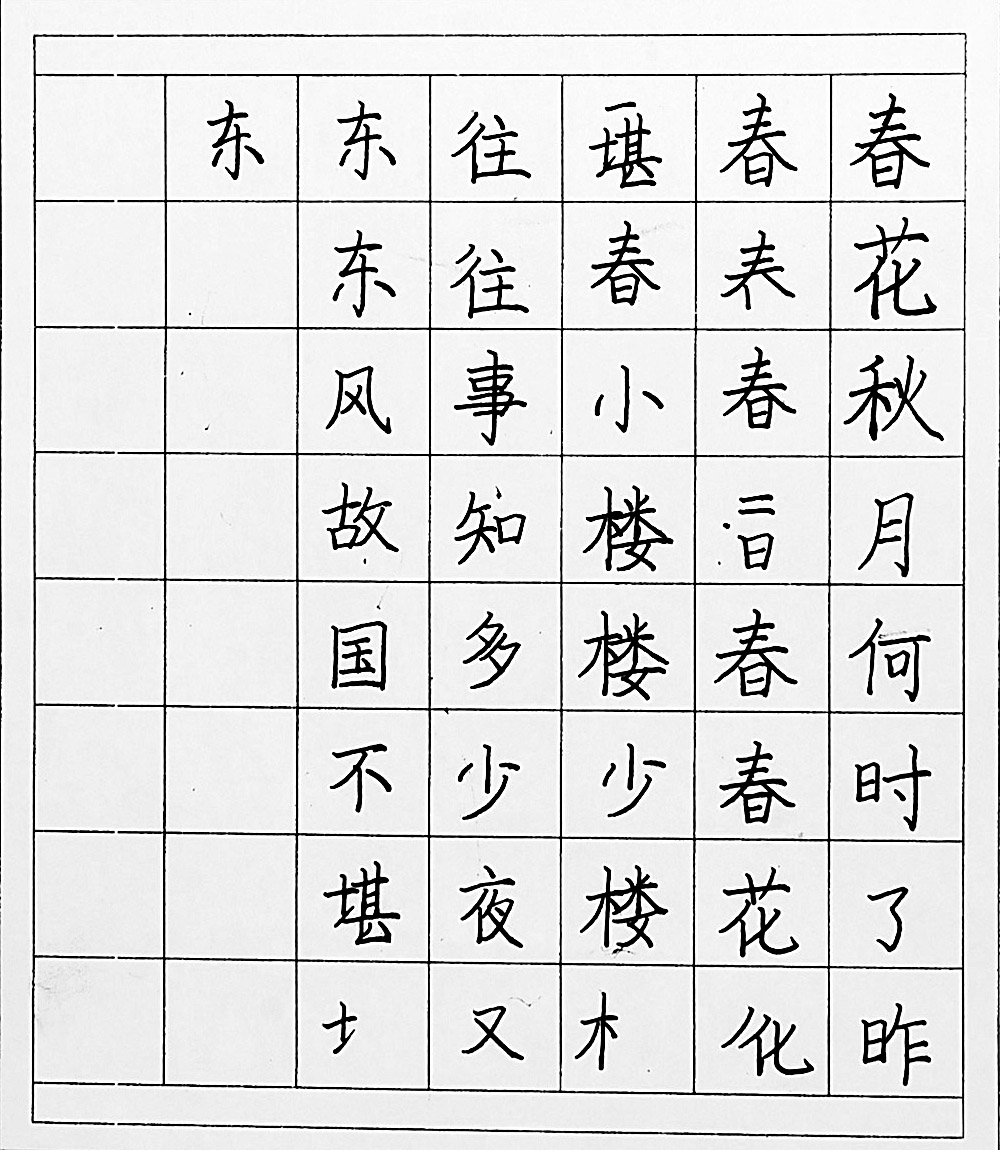 春花秋月何时了昨
春𡗗春二日春春花化
春小楼楼少楼木
往往事知多少夜又
东东风故国不堪土
东